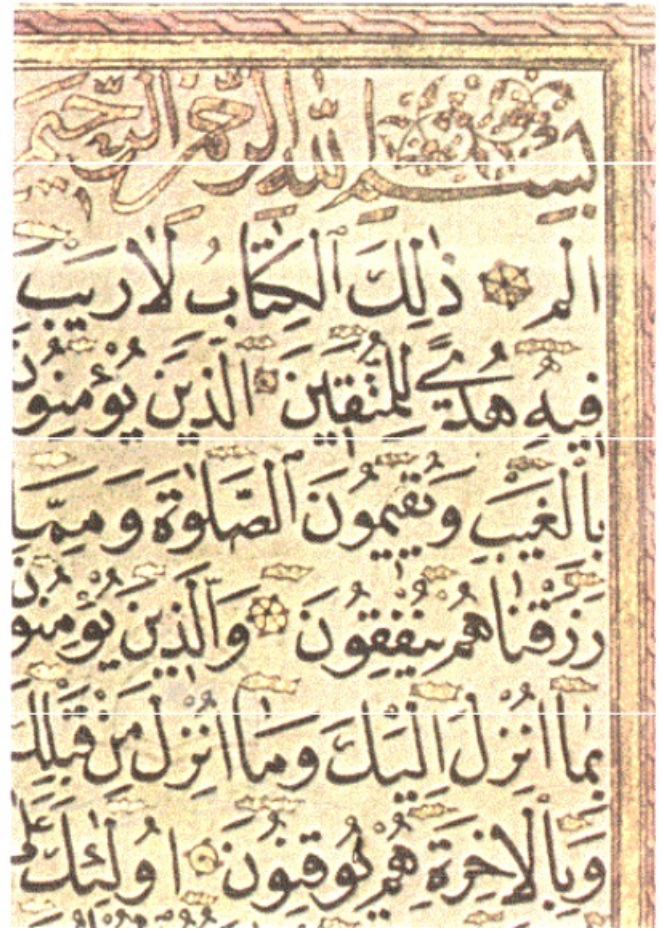 بِسْمِ اللّٰهِ الرَّحْمٰنِ الرَّحِيمِ
الم ذٰلِكَ الْكِتَابُ لَا رَيْبَ
فِيهِ هُدًى لِلْمُتَّقِينَ الَّذِينَ يُؤْمِنُونَ
بِالْغَيْبِ وَيُقِيمُونَ الصَّلٰوةَ وَمِمَّا
رَزَقْنَاهُمْ يُنْفِقُونَ وَالَّذِينَ يُؤْمِنُونَ
بِمَا اُنْزِلَ اِلَيْكَ وَمَا اُنْزِلَ مِنْ قَبْلِكَ
وَبِالْاٰخِرَةِ هُمْ يُوقِنُونَ اُولٰئِكَ عَلٰى